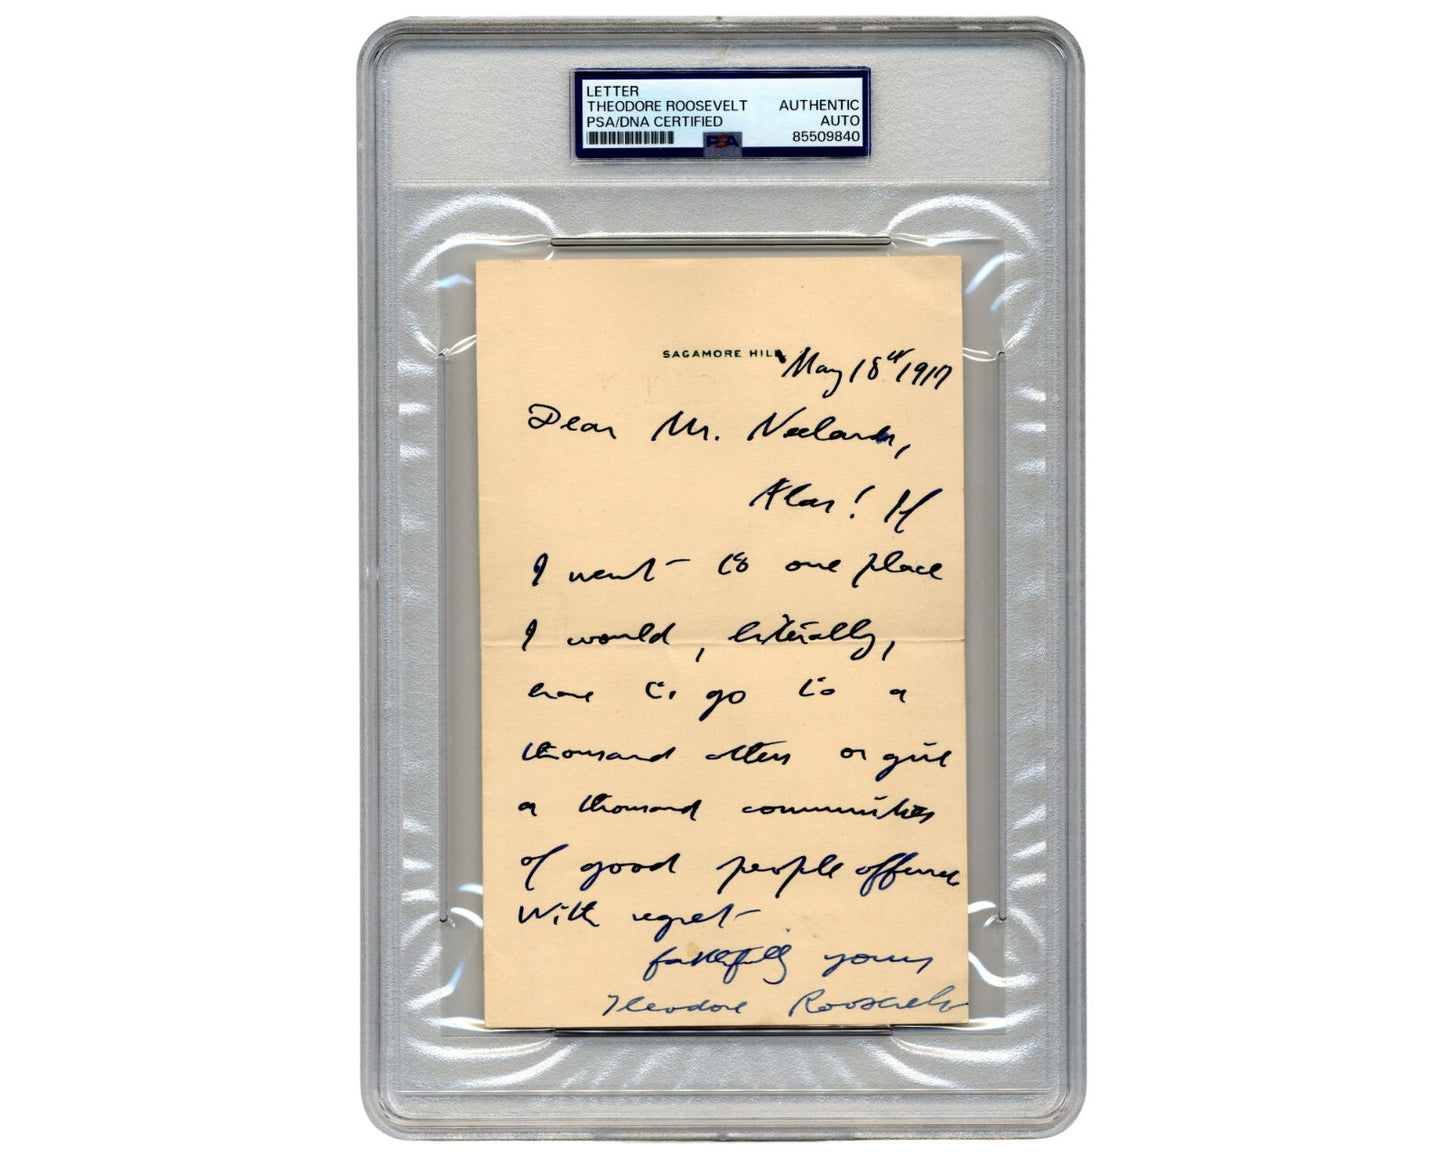 LETTER
THEODORE ROOSEVELT AUTHENTIC
PSA/DNA CERTIFIED AUTO
PSA 85509840
SAGAMORE HILL
May 18th 1917
Dear Mr.
Alas! If
I went to one place
I would, literally,
have to go to a
thousand others or give
a thousand communities
of good people offense
With regret
faithfully yours
Theodore Roosevelt